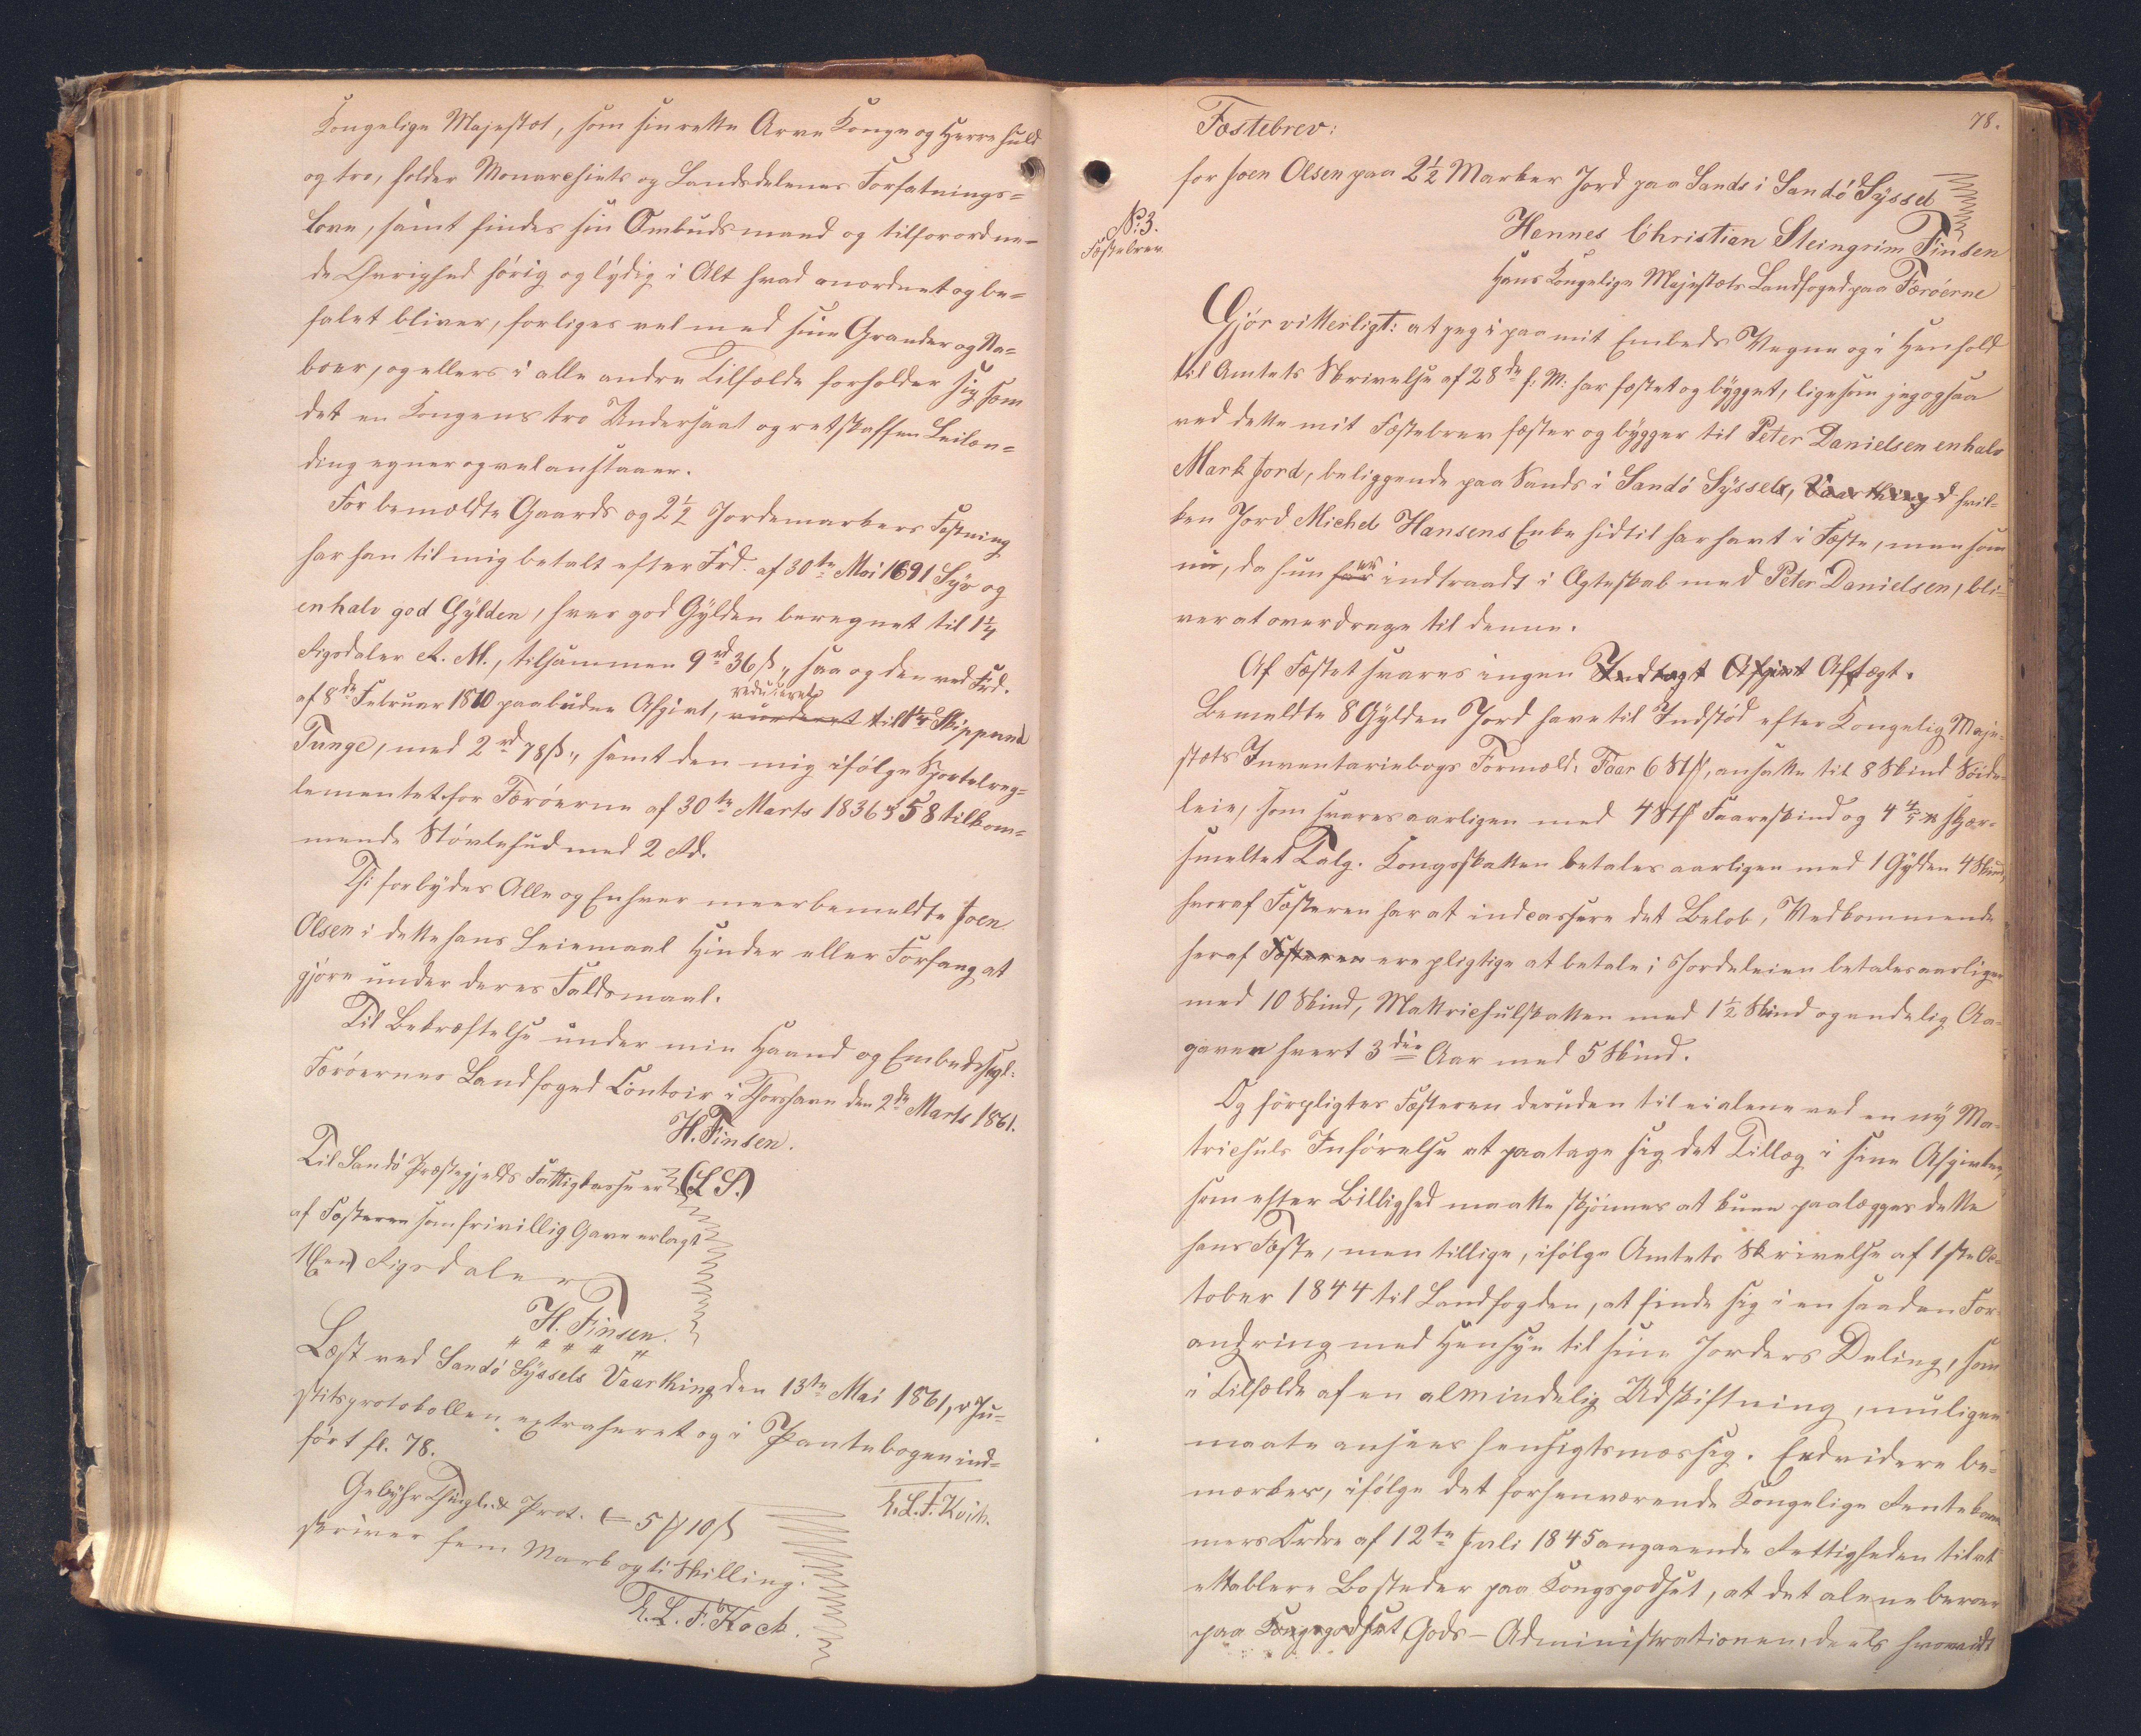 Kongelige Majestæt, som sin rette Arve Konge og Herre huld
og tro, holder Monarchiets og Landsdelenes Forfatnings=
love, samt findes sin Ombudsmand og tilforordne=
de Øvrighed hörig og lÿdig i Alt hvad anordnet og be=
falet bliver, forliges vel med sine Grander og Na=
boer, og ellers i alle andre Tilfælde forholder sig som
det en Kongens tro Undersaat og retskaffen Leilæn=
ding egner og vel anstaaer.
For bemældte Gaards og 2½ Jordemarkers Fæstning
har han til mig betalt efter Frd. af 30te Mai 1691 Sÿv og
en halv god Gÿlden, hver god Gÿlden beregnet til 1¼
Rigsdaler R. M., tilsammen 9 rd 36 ß„ saa og den ved Frd.
af 8de Februar 1810 paabudne Afgivt, reduceret til Skippund
Tunge, med 2 rd 78 ß„ samt den mig ifölge Sportelreg=
lementet for Færöerne af 30te Marts 1836 § 58 tilkom=
mende Stövlehud med 2 Rd.
Thi forbÿdes Alle og Enhver meerbemeldte Joen
Olsen i dette hans Leiemaal Hinder eller Forfang at
gjöre under deres Faldsmaal.
Til Bekræftelse under min Haand og Embedssegl.
Færöernes Landfoged Contoir i Thorshavn den 2de Marts 1861.
H. Finsen.
Til Sandö Præstegjelds Fattigkasse er (L S.)
af Fæsteren som frivillig Gave erlagt
1 (en) Rigsdaler
H. Finsen.
Læst ved Sandö Sÿssels Vaarthing den 13te Mai 1861, i Ju=
stitsprotokollen extraheret og i Pantebogen ind=
fört fl. 78.
h. L. F. Koch.
Gebÿhr Thingl. & Prot. = 5 10 ß
skriver fem Mark og ti Skilling.
h. L. F. Koch.
78.
Fæstebrev:
for Joen Olsen paa 2½ Marker Jord paa Sands i Sandö Sÿssel
No: 3.
Fæstebrev
Hennes Christian Steingrim Finsen
Hans Kongelige Majestæts Landfoged paa Færöerne
Gjör vitterligt: at jeg i paa mit Embeds Vegne og i Henhold
til Amtets Skrivelse af 28de f: M: har fæstet og bÿgget, ligesom jeg ogsaa
ved dette mit Fæstebrev fæster og bÿgger til Peter Danielsen en halv
Mark Jord, beliggende paa Sands i Sandö Sÿssel, Vaarthing d hvil=
ken Jord Michel Hansens Enke hidtil har havt i Fæste, men som
nu, da hun er indtraadt i Ægteskab med Peter Danielsen, bli=
ver at overdrage til denne.
Af Fæstet svares ingen Indtægt Afgivt Aftægt.
Bemeldte 8 Gÿlden Jord have til Indstöd efter Kongelig Maje=
stæts Inventariebogs Formæld: Faar 6 Stk, ansatte til 8 Skind Söide=
leie, som svares aarligen med 4 Stk Faareskind og 4 skjær=
smeltet Talg. Kongsskatten betales aarligen med 1 Gÿlden 4 Skind,
hvoraf Fæsteren har at indcassere det Belöb, Vedkommende
heraf Fæsteren ere pligtige at betale; Jordeleien betales aarligen
med 10 Skind, Matriculskatten med 1½ Skind og endelig Aa=
gaven hvert 3die Aar med 5 Skind.
Og forpligtes Fæsteren desuden til ei alene ved en nÿ Ma=
triculs Indförelse at paatage sig det Tillæg i sine Afgivter,
som efter Billighed maatte skjönnes at kunne paalægges dette
hans Fæste, men tillige, ifölge Amtets Skrivelse af 1ste Oc=
tober 1844 til Landfogden, at finde sig i en saadan For=
andring med Hensÿn til sine Jorders Deling, som
i Tilfælde af en almindelig Udskiftning, muligen
maate ansees hensigtsmæssig. Endvidere be=
mærkes, ifölge det forhenværende Kongelige Rentekam=
mers Ordre af 12te Juli 1845 angaaende Rettigheden til at
ettablere Bosteder paa Kongsgodset, at det alene beroer
paa Kongsgodset Gods-Administrationen, deels hvorvidt